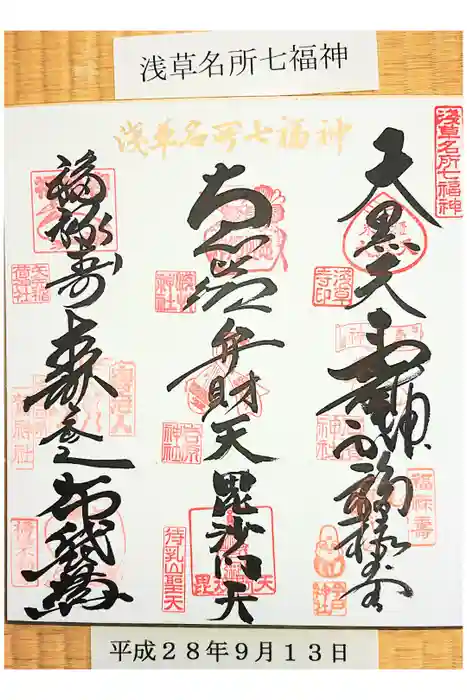 浅草名所七福神
浅草名所七福神
浅草名所七福神
大黒天
浅草寺印
寿老神
福禄寿
福禄寿
弁財天
吉原神社
毘沙門天
待乳山聖天
福禄寿
寿老人
布袋尊
平成２８年９月１３日